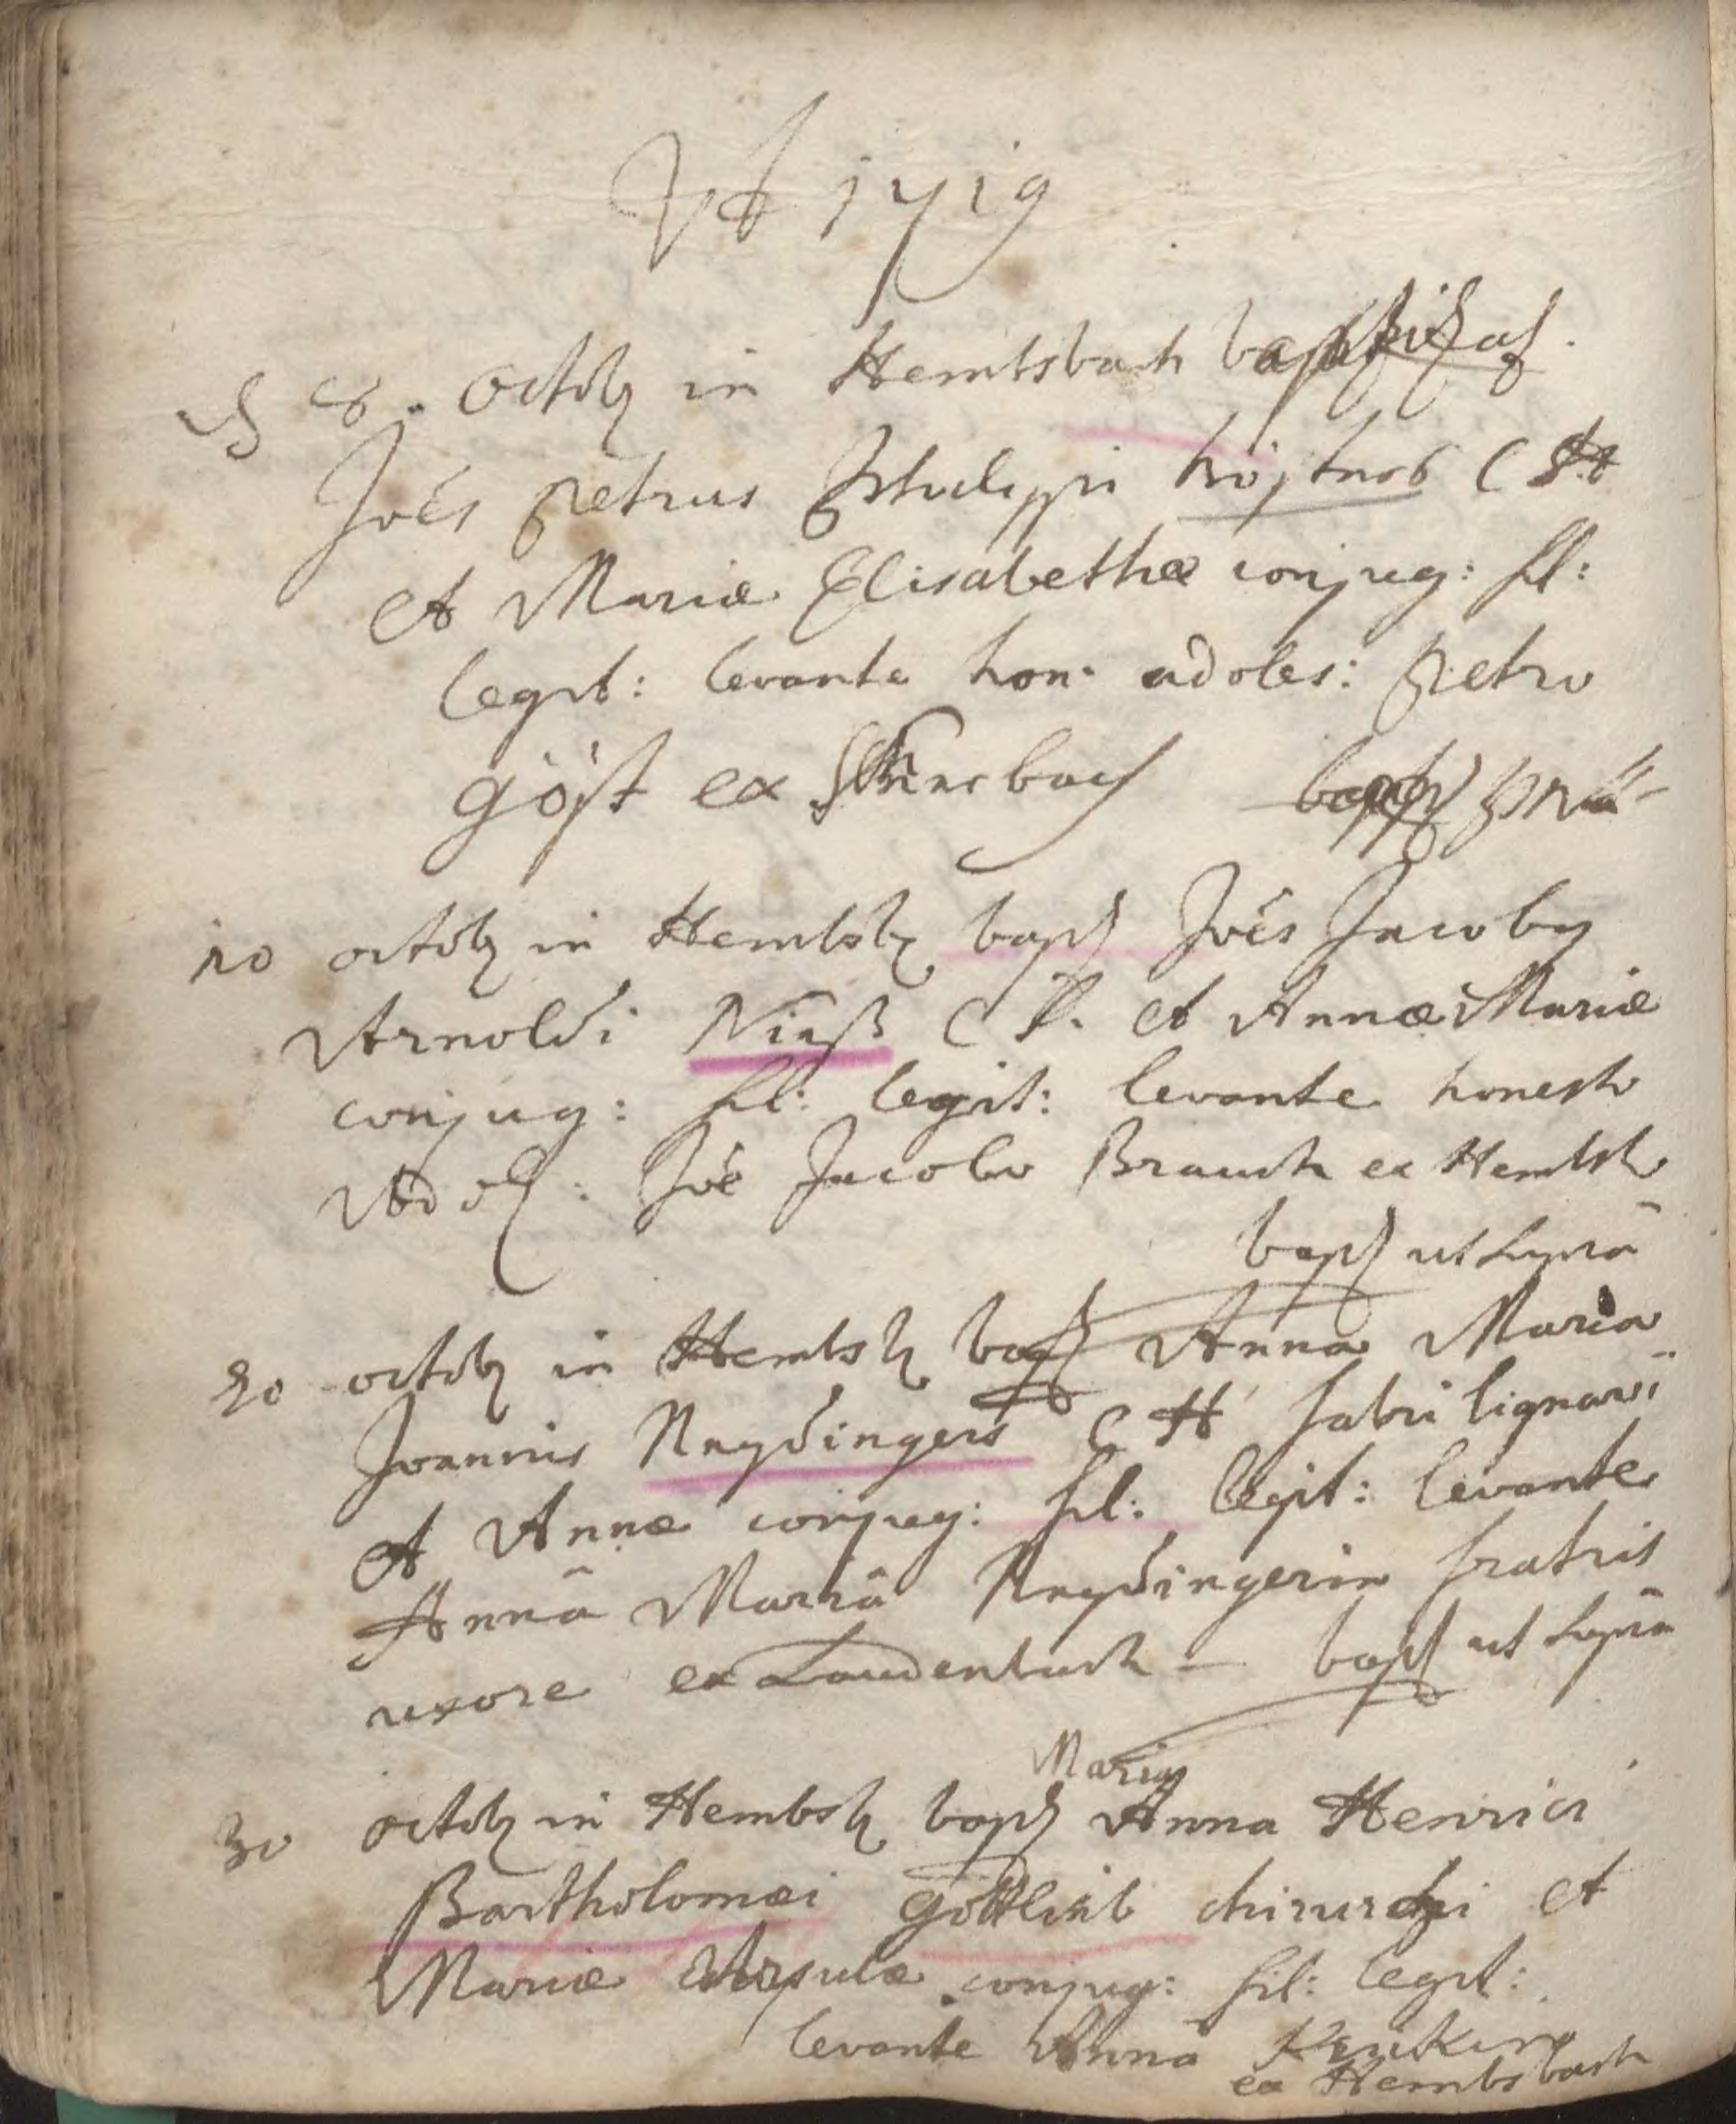 A 1719
8. octob in Hembsbach
Joēs Petrus Philippi C H
et Mariæ Elisabethæ conjug: fil:
legit: levante hon: adoles: Petro
göst ex
10 octob in Hembsb bapt Joēs Jacoby
Arnoldi Nieß C P. et Annæ Mariæ
conjug: fil: legit: levante honesto
Adol: Joē Jacobo Brauch ex Hembsb
bapt ut suprā
20 octob in Hembsb bapt Anna Maria
Joannis Neydingers C H fabri lignarii
et Annæ conjug: fil: legit: levante
Annā Mariā Neydingerin fratris
uxore ex Laudenbach – bapt ut suprā
Maria
30 octob in Hembsb bapt Anna Henrici
Bartholomæi Gottlieb chirurgi et
Mariæ Ursulæ conjug: fil: legit:
levante Anna
ex Hembsbach